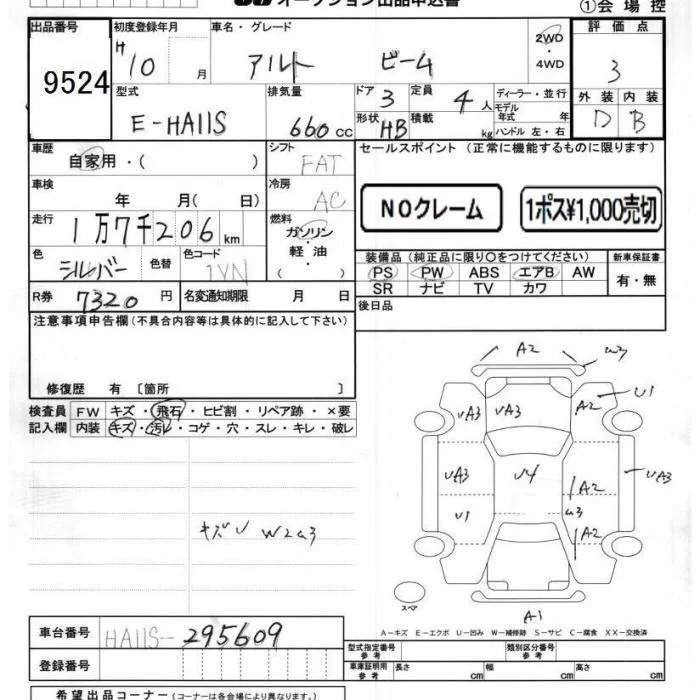 オークション出品申込書
①会場控
出品番号 初度登録年月 車名・グレード 評価点
9524 H10 月 アルト ビーム 2WD・4WD 3
型式 排気量 ドア 3 定員 4 人 ディーラー・並行 外装 内装
E-HA11S 660 CC 形状 HB 積載 kg モデル年式 年 D B
ハンドル 左・右
車歴 自家用・( ) シフト FAT セールスポイント (正常に機能するものに限ります)
車検 年 月( 日) 冷房 AC
NOクレーム 1ポス¥1,000売切
走行 1万7千206 km 燃料 ガソリン・軽油・( )
色 シルバー 色替 色コード 1VN 装備品 (純正品に限り○をつけてください) 新車保証書
PS PW ABS エアB AW 有・無
SR ナビ TV カワ
R券 7320 円 名変通知期限 月 日 後日品
注意事項申告欄 (不具合内容等は具体的に記入して下さい)
修復歴 有 〔箇所 〕
検査員 FW キズ・飛石・ヒビ割・リペア跡・×要
記入欄 内装 キズ・汚レ・コゲ・穴・スレ・キレ・破レ
A2
UA3 UA3 A2 U1
UA3 U4 A2 UA3
U1 A2
キズU W2
スペア
A1
A-キズ E-エクボ U-凹み W-補修跡 S-サビ C-腐食 XX-交換済
車台番号 HA11S-295609
型式指定番号 参考 類別区分番号 参考
登録番号 車庫証明用 参考 長さ cm 幅 cm 高さ cm
希望出品コーナー (コーナーは各会場により異なります。)